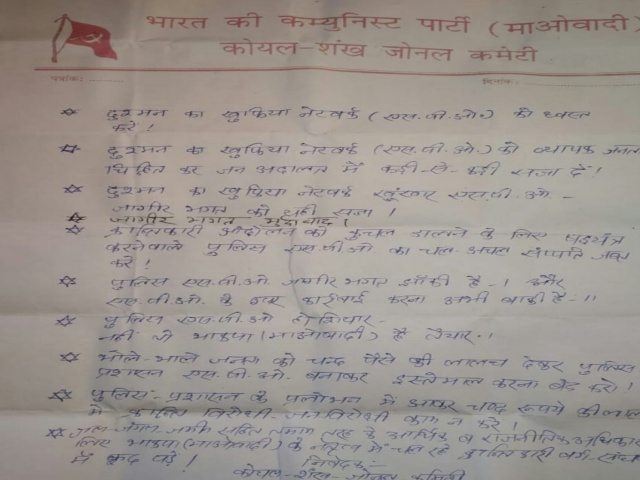 भारत की कम्युनिस्ट पार्टी (माओवादी)
कोयल-शंख जोनल कमेटी
पत्रांक:
दिनांक:
दुश्मन का खुफिया नेटवर्क (एस.पी.ओ.) को ध्वस्त
करें!
दुश्मन का खुफिया नेटवर्क (एस.पी.ओ.) को व्यापक जनता
चिह्नित कर जन अदालत में कड़ी-से-कड़ी सजा दें!
दुश्मन का खुफिया नेटवर्क खूंखार एस.पी.ओ.-
जागीर भगत को सही सजा!
जागीर भगत मुर्दाबाद!
क्रांतिकारी आंदोलन को कुचल डालने के लिए षडयंत्र
करनेवाले पुलिस एस.पी.ओ. का चल-अचल संपत्ति जब्त
करें!
पुलिस एस.पी.ओ. जागीर भगत झाँकी है-! और
एस.पी.ओ. के कार्रवाई करना अभी बाकी है-!!
पुलिस एस.पी.ओ होशियार-
नहीं तो भाकपा (माओवादी) है तैयार-!
भोले-भाले जनता को चन्द पैसे की लालच देकर पुलिस
प्रशासन एस.पी.ओ. बनाकर इस्तेमाल करना बंद करो!
पुलिस-प्रशासन के प्रलोभन में आकर चन्द रूपये की लालच
में क्रांति विरोधी-जनविरोधी काम न करें!
जल-जंगल जमीन सहित तमाम तरह के आर्थिक व राजनीतिक अधिकार
लिए भाकपा (माओवादी) के नेतृत्व में चल रहे क्रांतिकारी वर्ग-संघर्ष
में कूद पड़ें!
निवेदक:-
कोयल-शंख-जोनल कमिटी